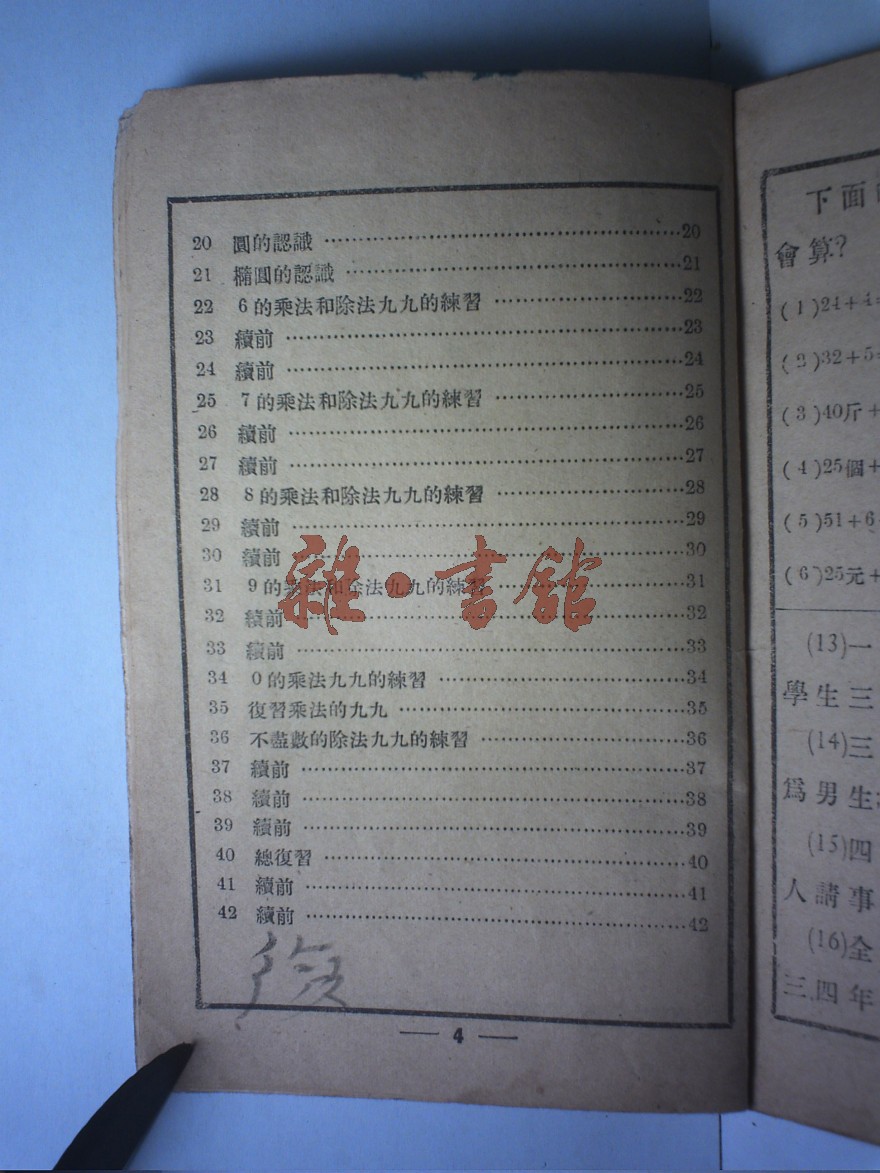 20 圓的認識 ……20
21 橢圓的認識 ……21
22 6的乘法和除法九九的練習 ……22
23 續前 ……23
24 續前 ……24
25 7的乘法和除法九九的練習 ……25
26 續前 ……26
27 續前 ……27
28 8的乘法和除法九九的練習 ……28
29 續前 ……29
30 續前 ……30
31 9的乘法和除法九九的練習 ……31
32 續前 ……32
33 續前 ……33
34 0的乘法九九的練習 ……34
35 復習乘法的九九 ……35
36 不盡數的除法九九的練習 ……36
37 續前 ……37
38 續前 ……38
39 續前 ……39
40 總復習 ……40
41 續前 ……41
42 續前 ……42
— 4 —
雜·書館
下面
會算?
(1)24+4
(2)32+5
(3)40斤+
(4)25個+
(5)51+6
(6)25元+
(13)一
學生三
(14)三
爲男生
(15)四
人請事
(16)全
三.四年